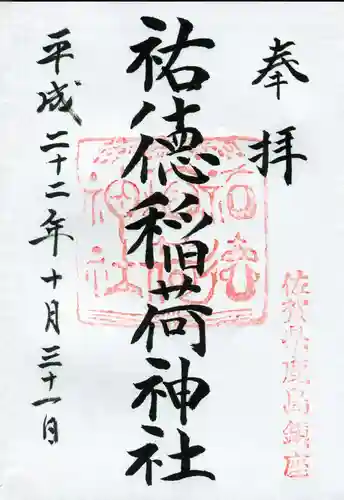 奉拝
佐賀県鹿島鎮座
祐徳稲荷神社
平成二十二年十月三十一日